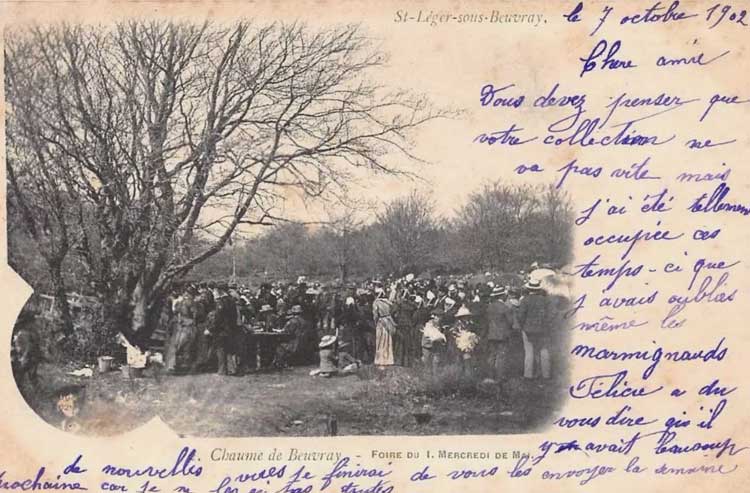 St-Léger-sous-Beuvray,
le 7 octobre 1902
Chere amie
Vous devez penser que
votre collection ne
va pas vite mais
j'ai été tellement
occupée ces
temps-ci que
j'avais oubliés
même les
marmignauds
Félicie a du
vous dire qu'il
y en avait beaucoup
Chaume de Beuvray. - FOIRE DU 1. MERCREDI DE MAI.
de nouvelles vues je finirai de vous les envoyer la semaine
prochaine car je ne les ai pas toutes